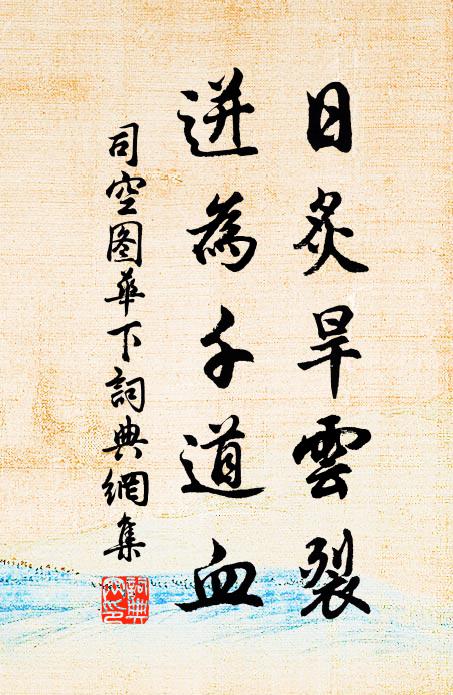 日炙旱雲裂
迸為千道血
司空图華下詞典網集